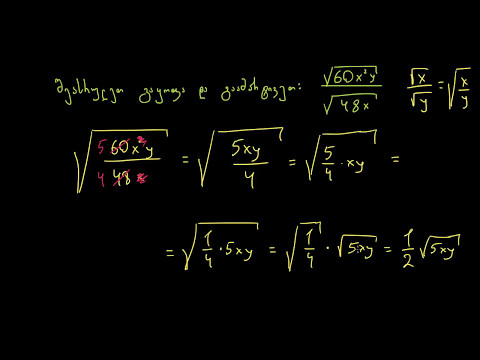 შეასრულეთ გაყოფა და გაამარტივეთ: √(60x²y) / √(48x) √x / √y = √(x/y)
√(5 60x²y / 4 48x) = √(5xy / 4) = √(5/4 · xy) =
= √(1/4 · 5xy) = √(1/4) · √(5xy) = 1/2 √(5xy)